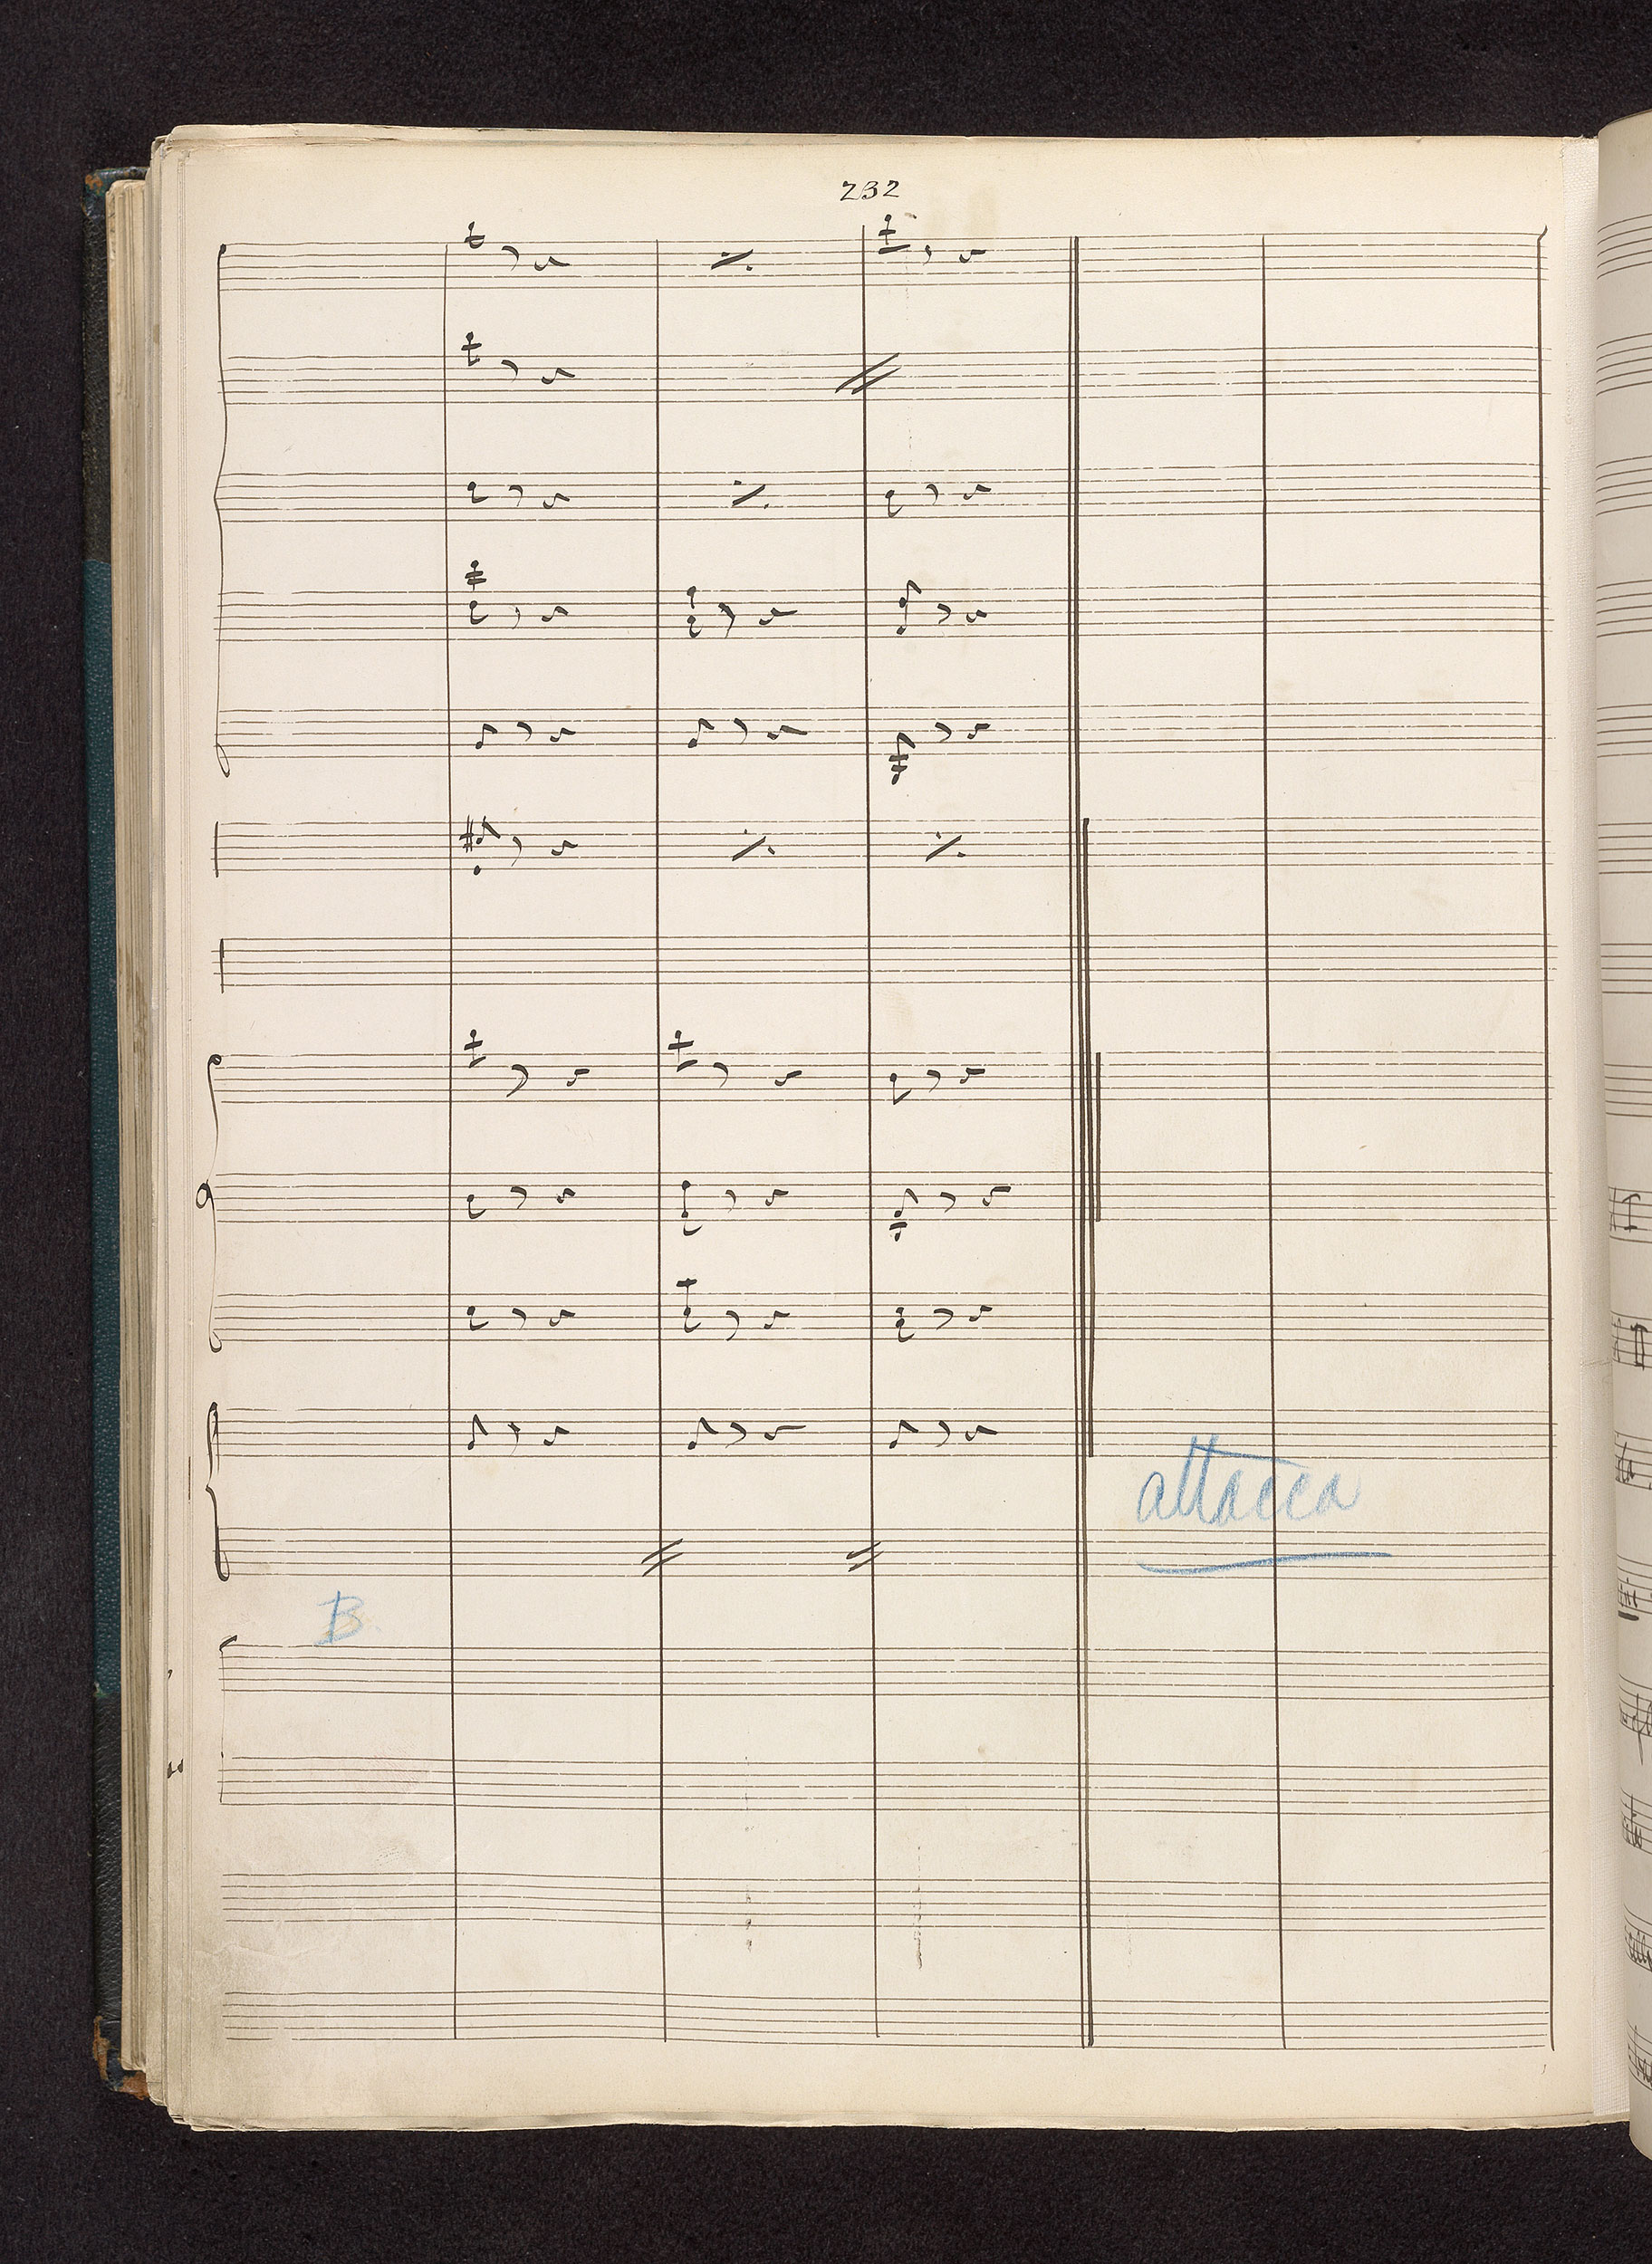 232
attacca
B.